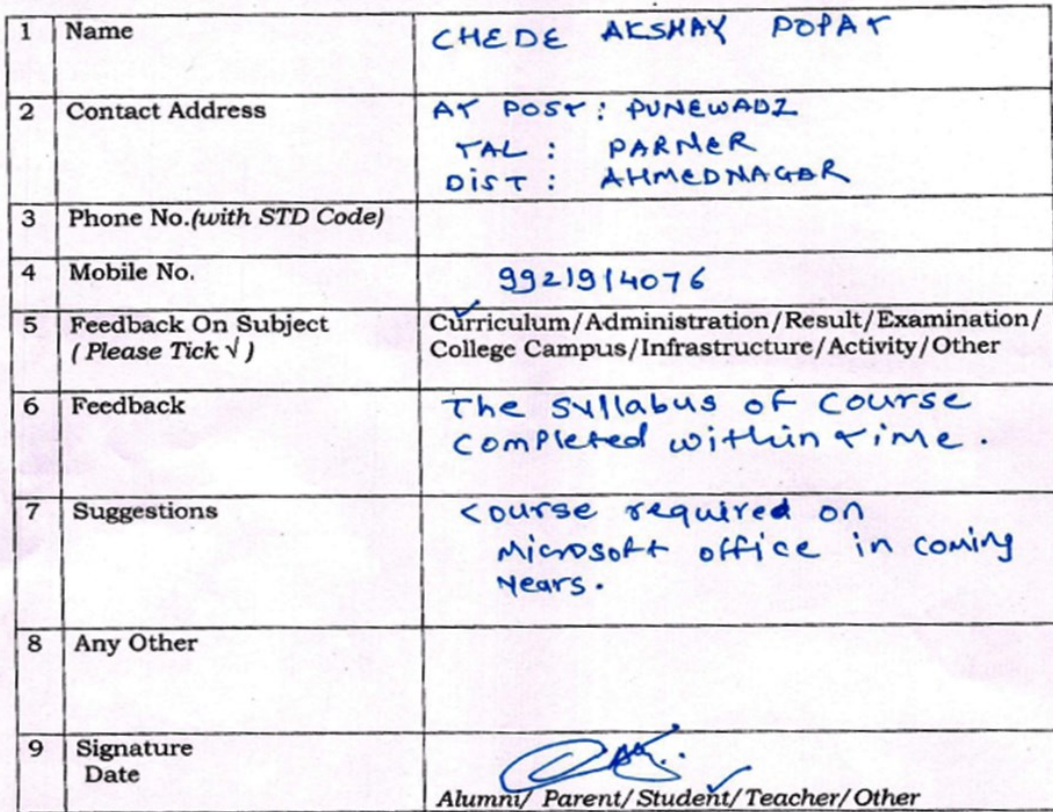 1 Name CHEDE AKSHAY POPAT
2 Contact Address AT POST: PUNEWADI
TAL : PARNER
DIST : AHMEDNAGAR
3 Phone No.(with STD Code)
4 Mobile No. 9921914076
5 Feedback On Subject Curriculum/Administration/Result/Examination/
( Please Tick √ ) College Campus/Infrastructure/Activity/Other
6 Feedback The syllabus of course
completed within time.
7 Suggestions Course required on
Microsoft office in coming
years.
8 Any Other
9 Signature
Date
Alumni/ Parent/Student/Teacher/Other